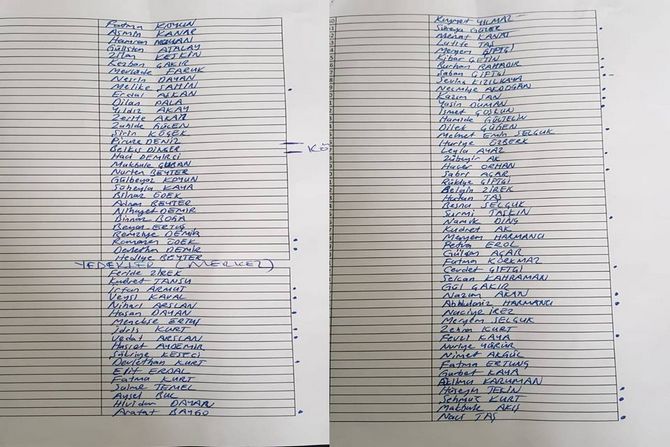 Fatma KOYUN
Asmin KANAR
Hamran
Gülistan ATALAY
Zilan KESKİN
Kezban ÇAKIR
Mevlüde FARUK
Nesrin DAYAN
Melike ŞAHİN
Erdal ASKAN
Dilan DALA
Yıldız AKAY
Zerife AKAR
Zahide GÜLEN
Şirin KÖÇEK
Piruze DENİZ
Belkıs DİNÇER
KÖ
Haci DEMİRCİ
Makbule
Nurten BEYTER
Gülbeyaz KOYUN
Soheyla KAYA
Binnaz ÖDEK
Adnan BEYTER
Nilhayet DEMİR
Binnaz BOĞA
Beyaz ERTUŞ
Remziye DEMİR
Ramazan ÖDEK
Devlethan DEMİR
Hediye BEYTER
YEDEKLER (MERKEZ)
Feride ZİREK
Kudret TANSU
İrfan ARMUT
Veysi KAVAL
Nihari ARSLAN
Hasan DAYAN
Menekşe ERTUŞ
İdris KURT
Vedat ARSLAN
Hasret AYDEMİR
Sabriye KEŞECİ
Devlethan KURT
Elif ERDAL
Fatma KURT
Salme TEMEL
Aysel BUL
Hividan DAYAN
Arafat BAYGO
Kıymet YILMAZ
Süheyla GÜLER
Menaf KANAT
Lütife TAŞ
Meryem ÇİFTÇİ
Kibar ÇETİN
Burhan
Şaban ÇİFTÇİ
Sevda KIZILKAYA
Necmiye AKDOĞAN
Kazım ŞAN
Yasin DUMAN
İsmet COŞKUN
Hamide GÜLTEKİN
Dilek GÜREN
Mehmet Emin SELÇUK
Huriye ÖZBERK
Leyla AYAZ
Zübeyir AK
Haver ORHAN
Sabri AÇAR
Rukiye ÇİFTÇİ
Belgin ZİREK
Hurhan TAŞ
Besna SELÇUK
Sürmi TAŞKIN
Namık DİNÇ
Kudret AK
Meryem HARMANCI
Petra EROL
Gülşen AÇAR
Fatma KORKMAZ
Cevdet ÇİFTÇİ
Selcan KAHRAMAN
Gül ÇAKIR
Nazım AKAN
Abdulaziz HARMANCI
Naciye İREZ
Meryem SELÇUK
Zehra KURT
Fevzi KAYA
Nuriye YÖRÜR
Nimet AKGÜL
Fatma ERTUNÇ
Gurbet KAYA
Atilma KARUMAN
Hüseyin TEKİN
Şehmus KURT
Makbule AKIŞ
Naci TAŞ